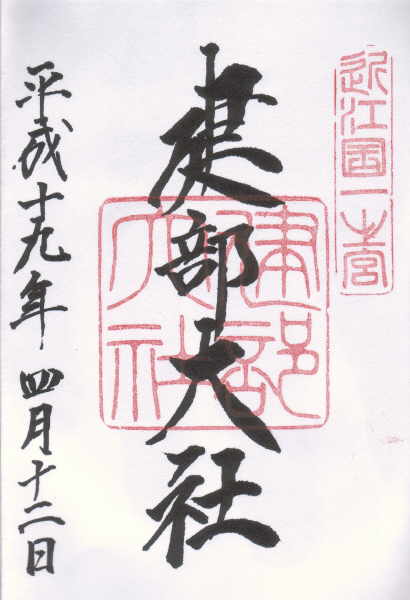 近江国一之宮
建部大社
建部大社
平成十九年四月十二日